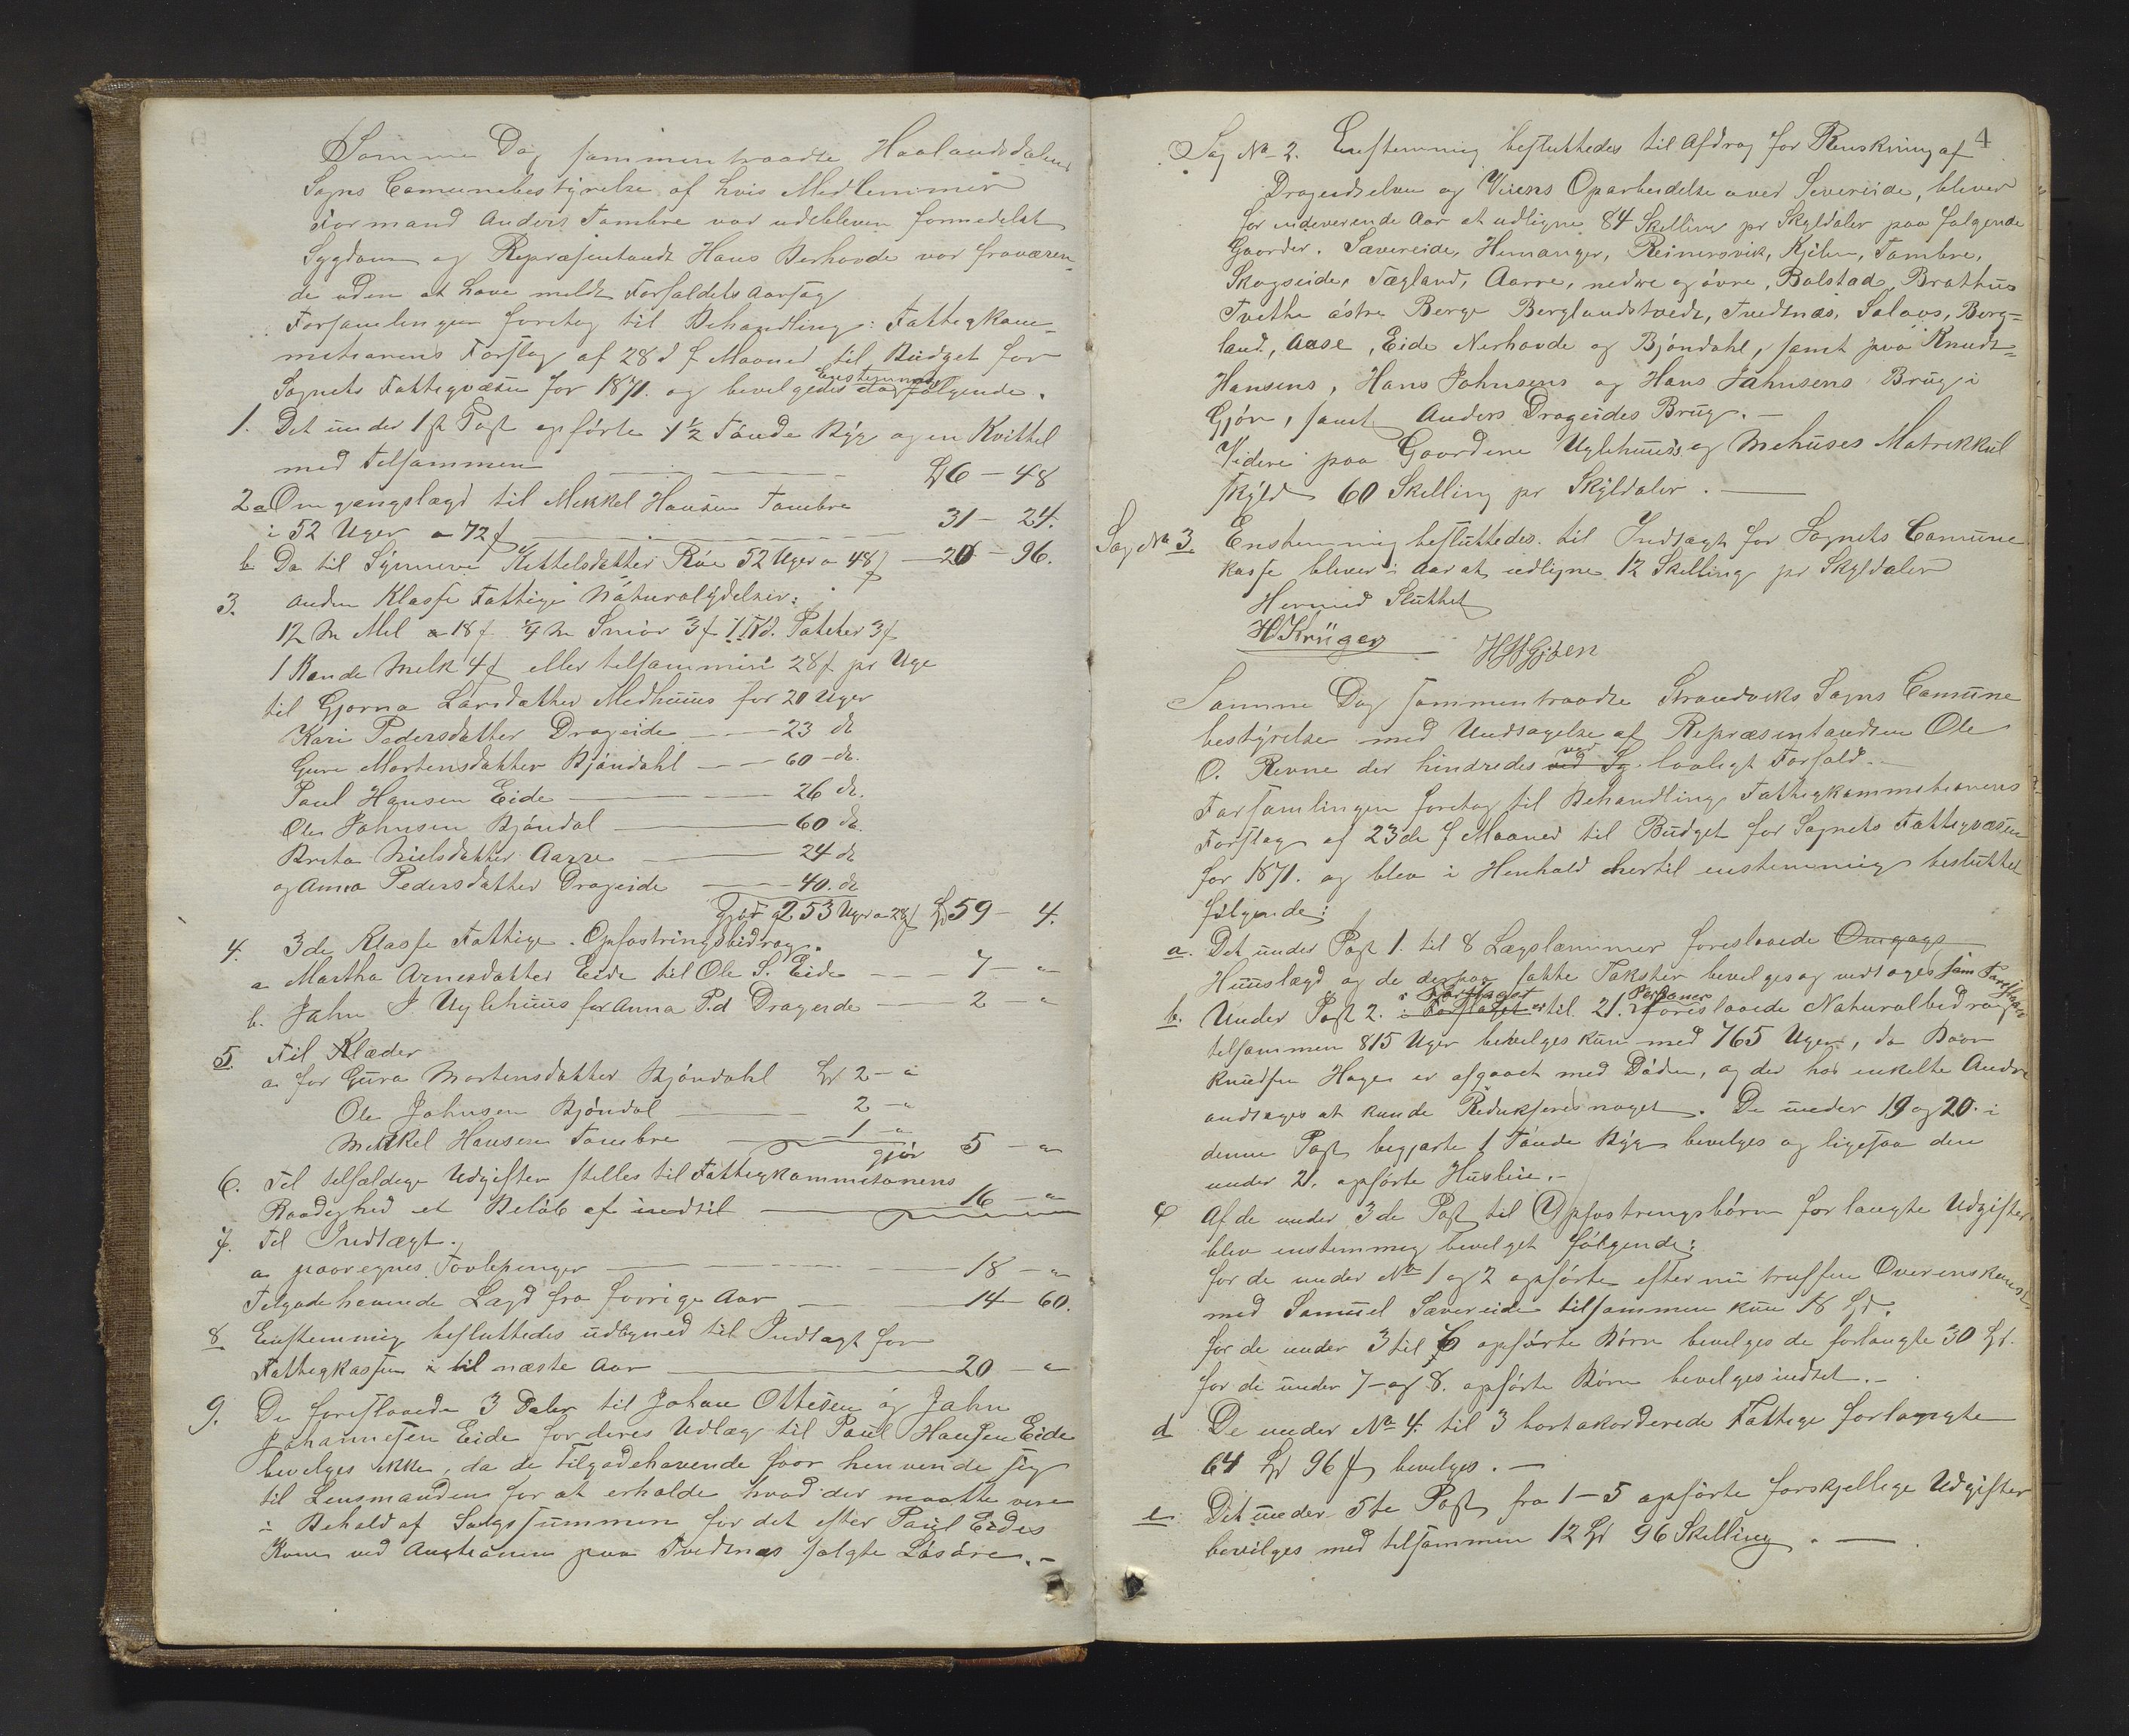 Samme Dag sammentraadte Haalandsdalens
Sogns Comunebestyrelse af hvis Medlemmer
Formand Anders Tombre var udebleven formedelst
Sygdom og Repræsentandt Hans Nerhovde var fraværen-
de uden at have meldt Forfaldets Aarsag
Forsamlingen foretog til Behandling: Fattigkom-
mitionens Forslag af 28 d f Maaned til Budget for
Sognets Fattigvæsen for 1871. og bevilgedes Enstemmig følgende.
1. Det under 1st Post opførte 1 1/2 Tønde Byg og en Kvittel
med tilsammen 6 - 48
2 a Omgangslægd til Mikkel Hansen Tombre
i 52 Uger a 72 ſ 31 - 24.
b Do til Synneve Kittelsdatter Røe 52 Uger a 48 ſ 20 - 96.
3. Anden Klasse Fattige Naturalydelser:
12 M Mel a 18 ſ. 1/4 M Smør 3 ſ 1 Pd. Poteter 3 ſ
1 Kande Melk 4 ſ eller tilsammen 28 ſ pr Uge
til Gjorna Larsdatter Medhuus for 20 Uger
Kari Pedersdatter Drageide 23 do
Gure Mortensdatter Bjøndahl 60 - do.
Paul Hansen Eide 26 do.
Ole Johnsen Bjøndal 60 do.
Brita Nielsdatter Aarre 24 do
og Anna Pedersdatter Drageide 40. do
Gjør 253 Uger a 28 ſ 59 - 4.
4. 3de Klasse Fattige. Opfostringsbidrag.
a Martha Arnesdatter Eide til Ole S. Eide 7 - "
b. John J Uglehuus for Anna P.d Drageide 2 - "
5. Til Klæder
a for Gura Mortensdatter Bjøndahl 2 - "
Ole Johnsen Bjøndal 2 - "
Mikkel Hansen Tombre 1 - "
gjør 5 - "
6. Til tilfældige Udgifter stilles til Fattigkommitionens
Raadighed et Beløb af indtil 16 - "
7. Til Indtægt.
a paaregnes Tavlepenger 18 - "
Tilgodehavende Lagd fra forrige Aar 14 - 60.
8 Enstemmig besluttedes udligned til Indtagt for
Fattigkassen til næste Aar 20 - "
9. De foreslaaede 3 Daler til Johan Ottesen og John
Johannesen Eide for deres Udlæg til Paul Hansen Eide
bevilges ikke, da de Tilgodehavende faar henvende sig
til Lensmanden for at erholde hvad der maatte være
i Behold af Salgssummen for det efter Paul Eides
Kone ved Auktionen paa Tvedtnæs solgte Løsøre.-
4
Sag No 2. Enstemmig besluttedes til Afdrag for Renskning af
Drageidselven og Veiens Oparbeidelse over Severeide, bliver
for indeværende Aar at udligne 84 Skelling pr Skyldaler paa følgende
Gaarder. Sævereide, Henanger, Reinersvik, Kjilen, Tombre,
Skogseide, Tægland, Aarre, nedre og øvre, Bolstad, Brathuus
Tvethe østre Berge Berglandstvedt, Tvedtnæs, Solaas, Berg-
land, Aase, Eide Nerhovde og Bjøndahl, samt paa Knudt
Hansens, Hans Johnsens og Hans Johnsens Brug i
Gjøn, samt Anders Drageides Brug.-
Videre paa Gaardene Uglehuus og Mehuses Matrikkul
skyld 60 Skelling pr Skyldaler.
Sag No 3. Enstemmig besluttedes til Indtægt for Sognets Comune
kasse bliver i Aar at udligne 12 Skelling pr Skyldaler
Hermed Sluttet
H Krüger
H H Gjøen
Samme Dag sammentraadte Strandviks Sogns Comune
bestyrelse med Undtagelse af Repræsentandten Ole
O. Revne der hindredes ved lovligt Forfald.
Forsamlingen foretog til Behandling Fattigkommitionens
Forslag af 23de f Maaned til Budget for Sognets Fattigvæsen
for 1871. og blev i Henhold hertil enstemmig besluttet
følgende:
a. Det under Post 1. til 8 Lægslemmer foreslaaede Omgags
Huuslægd og de derpaa satte Takster bevilges og vedtages som Foreslaaet
b. Under Post 2. til 21. Personer foreslaaede Naturalbidrag
tilsammen 815 Uger bevilges kun med 765 Uger, da Baar
Knudsen Hage er afgaaet med Døden, og der hos enkelte Andre
andtages at kunde Redukseres noget. De under 19 og 20. i
denne Post begjærte 1 Tønde Byg bevelges og ligesaa den
under 21. opførte Husleie.-
c Af de under 3de Post til Opfostringsbørn forlangte Udgifter
blev enstemmig bevelget følgende:
for de under No 1 og 2 opførte efter nu truffen Overenskomst
med Samuel Sævereide tilsammen kun 18
for de under 3 til 6 opførte Børn bevelges de forlangte 30
for de under 7 og 8. opførte Børn bevelges indtet.-
d De under No 4. til 3 bortakorderede Fattige forlangte
64 96 ſ bevelges.-
e. Det under 5te Post fra 1-5 opførte forskjellige Udgifter
bevilges med tilsammen 12 96 Skelling.